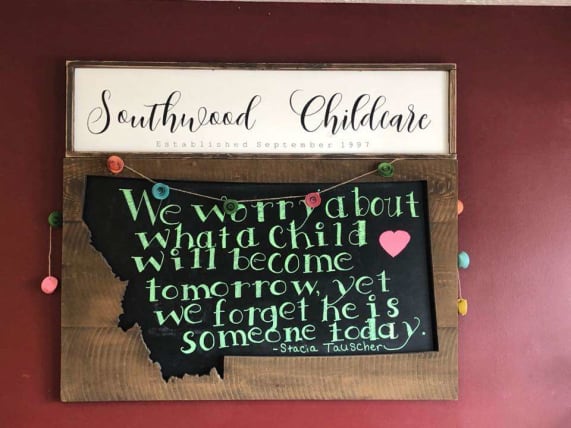 Southwood Childcare
Established September 1997
We worry about
what a child
will become
tomorrow, yet
we forget he is
someone today.
-Stacia Tauscher